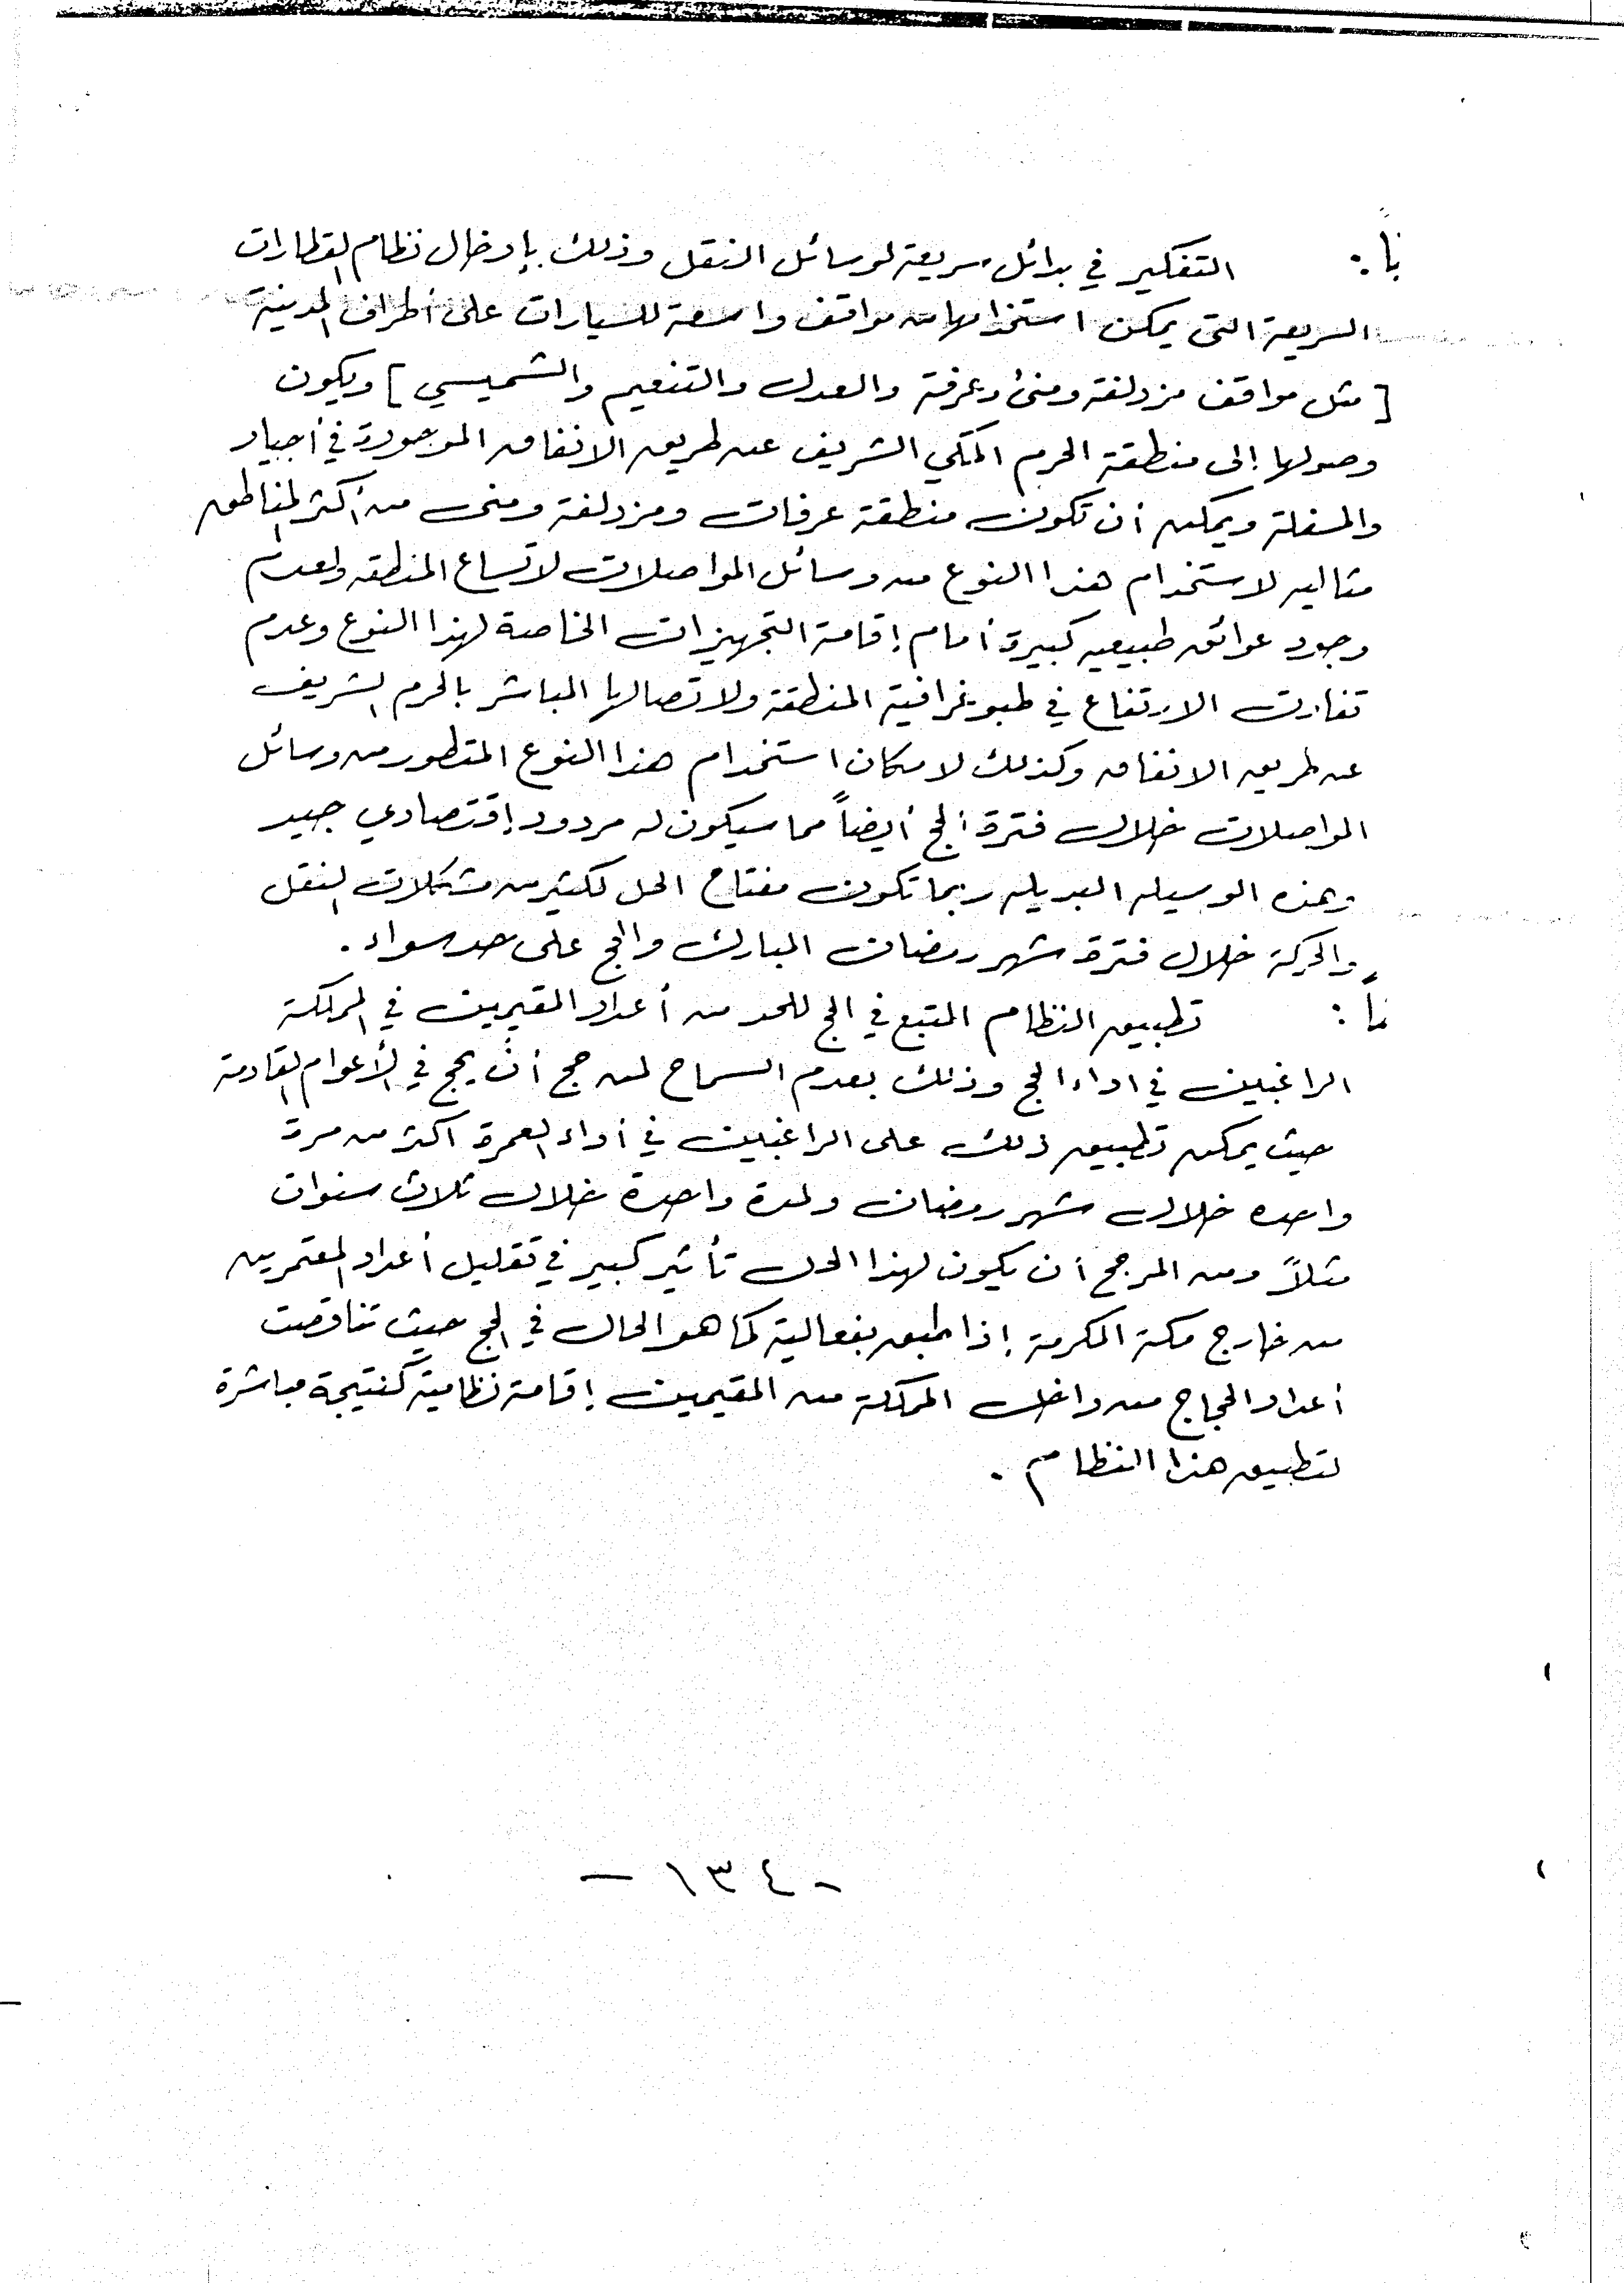 التفكير في بدائل سريعة لوسائل النقل وذلك بإدخال نظام القطارات
السريعة التى يمكن استخدامها من مواقف واسعة للسيارات على أطراف المدينة
[ مثل مواقف مزدلفة ومنى وعرفة والعدل والتنعيم والشميسي ] ويكون
وصولها إلى منطقة الحرم المكي الشريف عن طريق الانفاق الموجودة في أجياد
والمسفلة ويمكن أن تكون منطقة عرفات ومزدلفة ومنى من أكثر المناطق
مثاليه لاستخدام هذا النوع من وسائل المواصلات لاتساع المنطقه ولعدم
وجود عوائق طبيعيه كبيرة أمام إقامة التجهيزات الخاصة لهذا النوع وعدم
تفاوت الارتفاع في طبوغرافية المنطقة ولاتصالها المباشر بالحرم الشريف
عن طريق الانفاق وكذلك لامكان استخدام هذا النوع المتطور من وسائل
المواصلات خلال فترة الحج أيضاً مما سيكون له مردود إقتصادي جيد
وهذه الوسيله البديله ربما تكون مفتاح الحل لكثير من مشكلات النقل
والحركة خلال فترة شهر رمضان المبارك والحج على حد سواء .
تطبيق النظام المتبع في الحج للحد من أعداد المقيمين في المملكة
الراغبين في اداء الحج وذلك بعدم السماح لمن حج أن يحج في الأعوام القادمة
حيث يمكن تطبيق ذلك على الراغبين في أداء العمرة اكثر من مرة
واحده خلال شهر رمضان ولمدة واحدة خلال ثلاث سنوات
مثلاً ومن المرجح أن يكون لهذا الحل تأثير كبير في تقليل أعداد المعتمرين
من خارج مكة المكرمة إذا طبق بفعالية كما هو الحال في الحج حيث تناقصت
أعداد الحجاج من داخل المملكة من المقيمين إقامة نظامية كنتيجة مباشرة
لتطبيق هذا النظام .
- ١٣٤ -